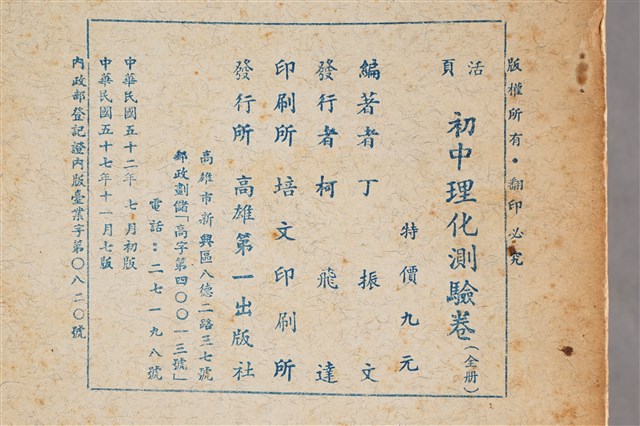 版權所有·翻印必究
活頁 初中理化測驗卷(全册)
特價九元
編著者丁振文
發行者柯飛達
印刷所培文印刷所
發行所高雄第一出版社
高雄市新興區八德二路三七號
郵政劃儲「高字第四〇〇一三號」
電話:二七一九八號
中華民國五十二年七月初版
中華民國五十七年十一月七版
內政部登記證內版臺業字第〇八二〇號